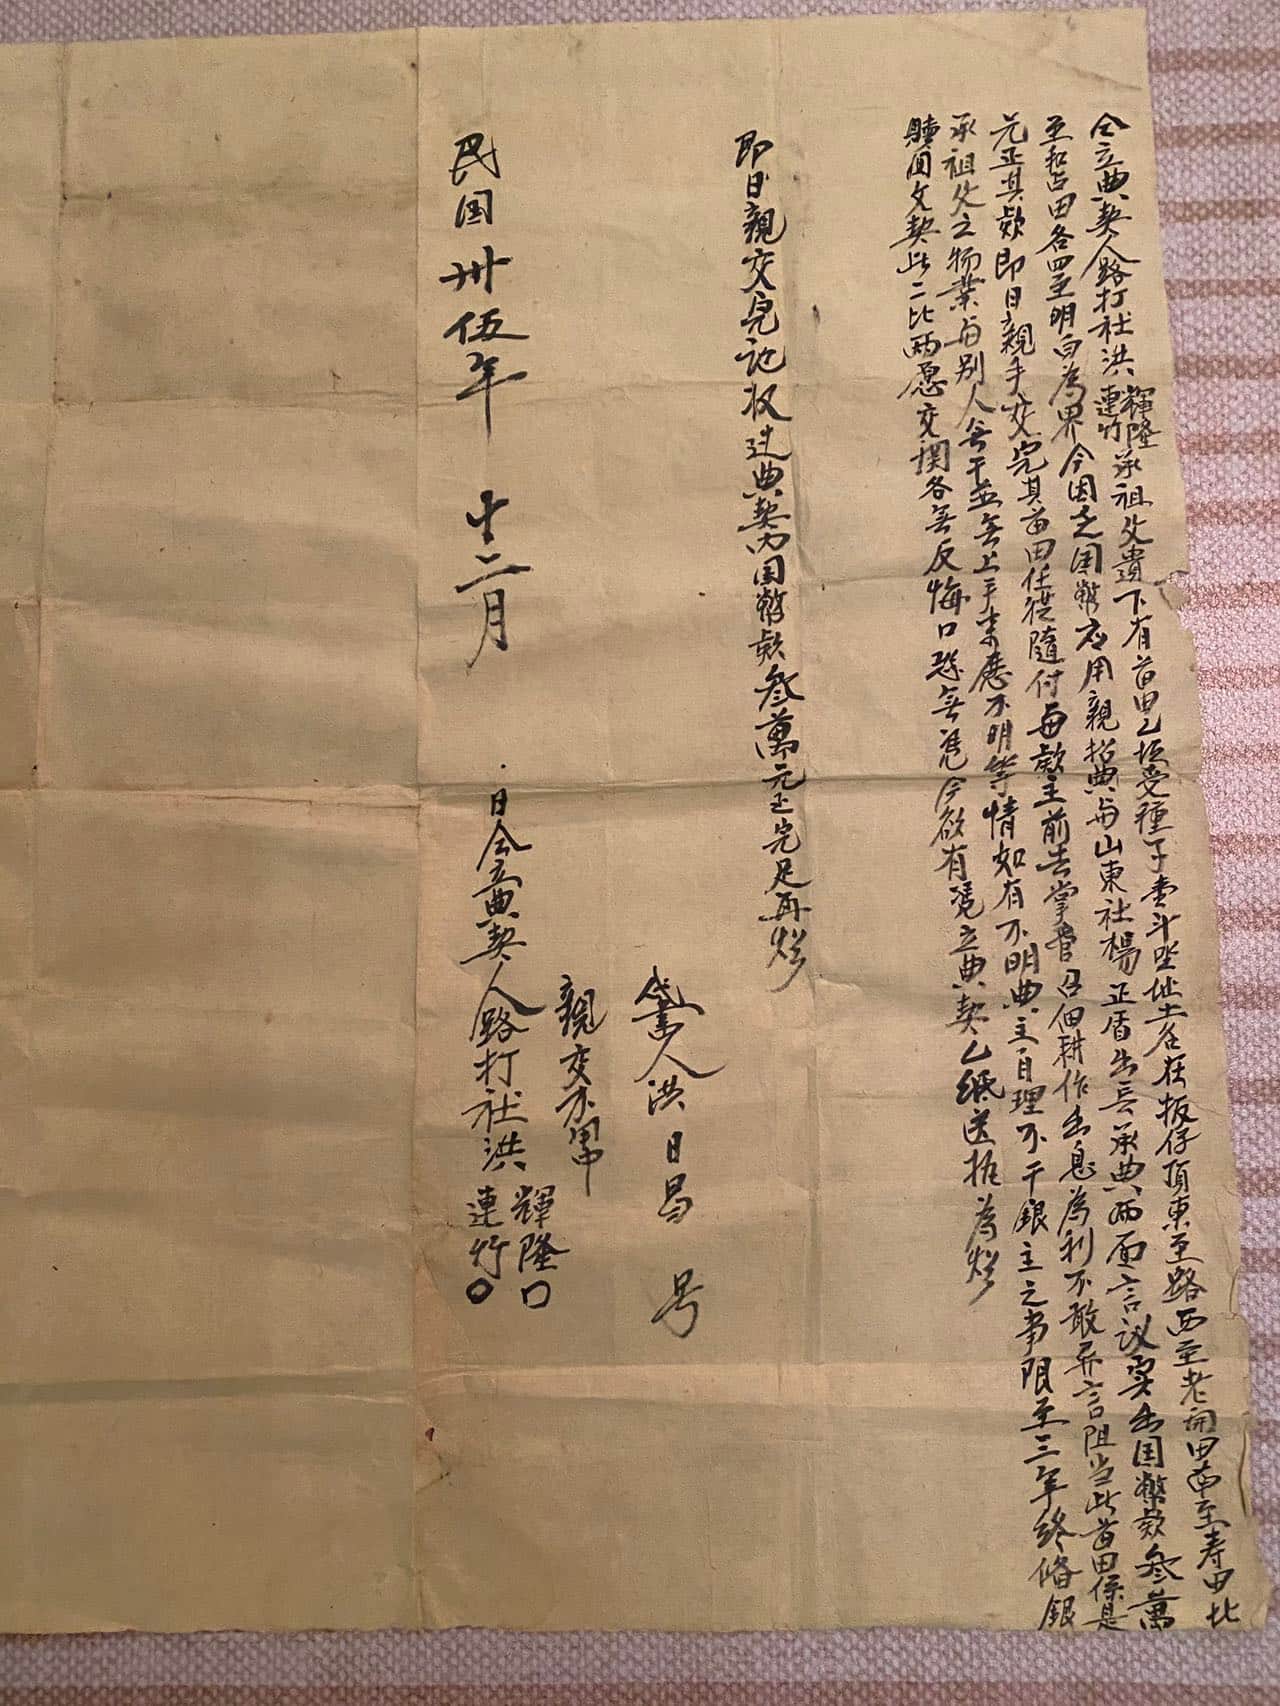 仝立典契人路打社洪輝隆連竹承祖父遺下有苗田乙坵受種子壹斗坐址土名在板仔頂東至路西至老開田南至寿田北
至和占田各四至明白為界今因乏国幣应用親招典与山東社楊正盾出長承典两面言议实出国幣款叁萬
元正其款即日親手交完其苗田任從隨付与款主前去掌管召佃耕作出息為利不敢异言阻当此苗田係是
承祖父之物業与別人無干並無上手来歷不明等情如有不明典主自理不干銀主之事限至三年終俻銀
贖回文契此二比两愿交関各無反悔口恐無凭今欲有凭立典契乙紙送抵為炤
即日親交見記收过典契内国幣款叁萬元正完足再炤
代書人洪日昌 号
親交不用中
民国卅伍年 十二月 日仝立典契人路打社洪輝隆口連竹〇